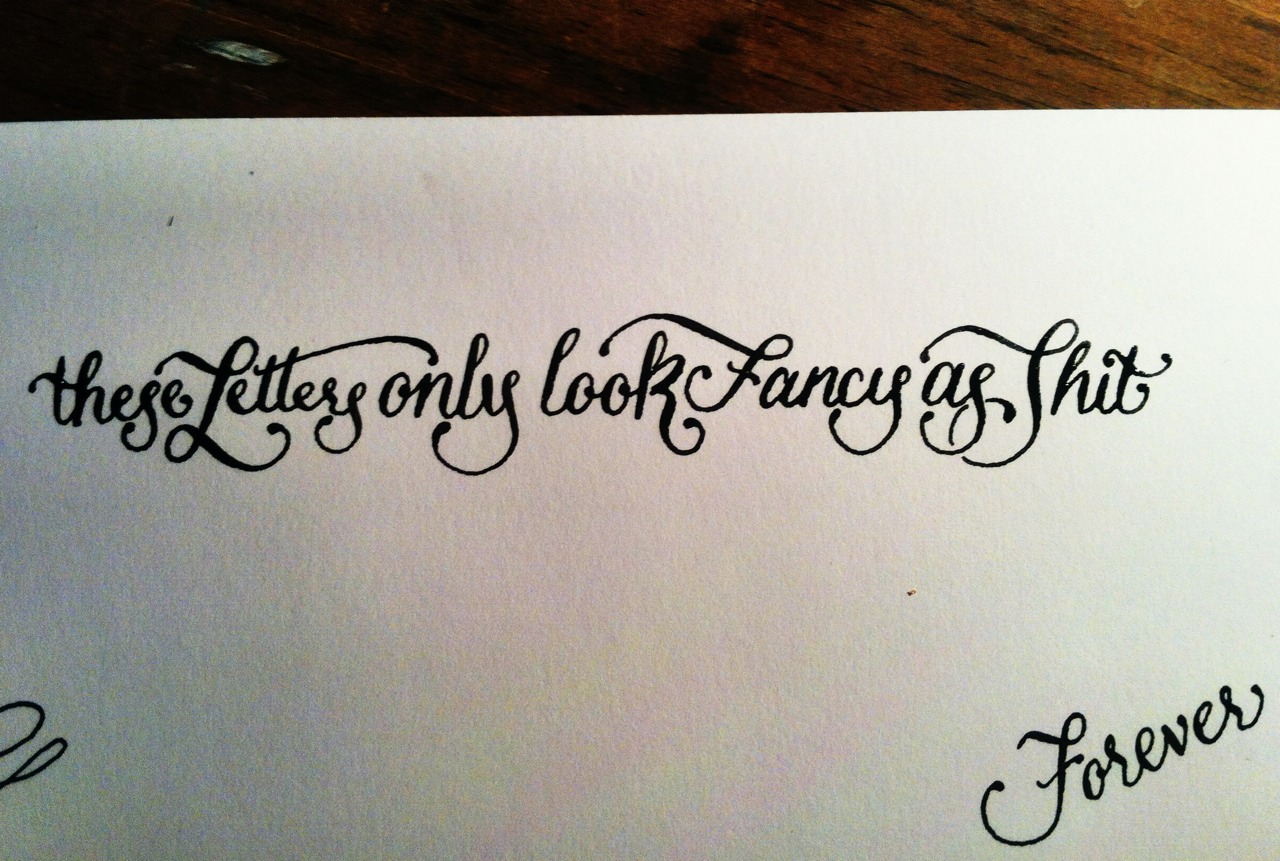 these Letters only look Fancy as Shit
Forever